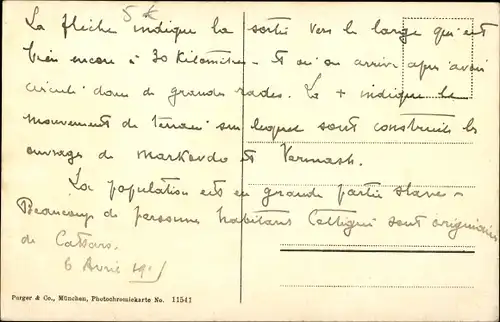 5 k
La flèche indique la sortie vers le large qui est
bien encore à 30 Kilomètres - et où on arrive après avoir
circulé dans de grandes rades. La + indique le
mouvement de terrain sur lequel sont construits les
ouvrages de Markovdo et Vermash.
La population est en grande partie slave -
Beaucoup de personnes habitant Cettigné sont originaires
de Cattaro.
6 Avril
Purger & Co., München, Photochromiekarte No. 11541